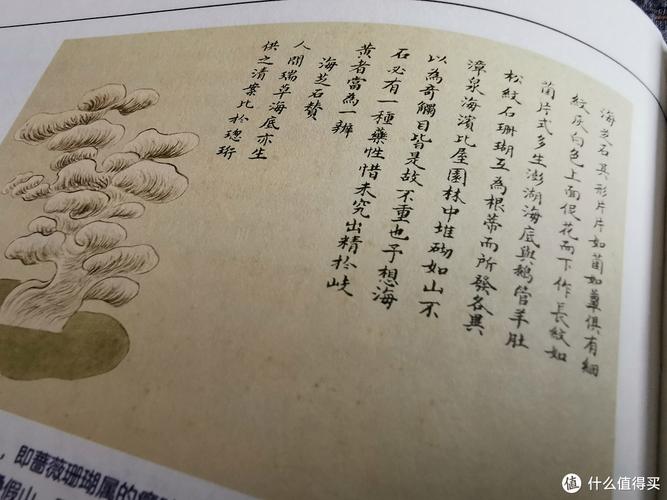 海芝石其形片片如菌如蕈俱有細
紋灰白色上面促花而下作長紋如
菌片式多生澎湖海底與鵝管羊肚
松紋石珊瑚互為根蒂而所發各異
漳泉海濱比屋園林中堆砌如山不
以為奇觸目皆是故不重也予想海
石必有一種藥性惜未究出精於岐
黄者當為一辨
海芝石贊
人間瑞草海底亦生
供之清案比於璁珩
，即蔷薇珊瑚属的
假山，
值 什么值得买